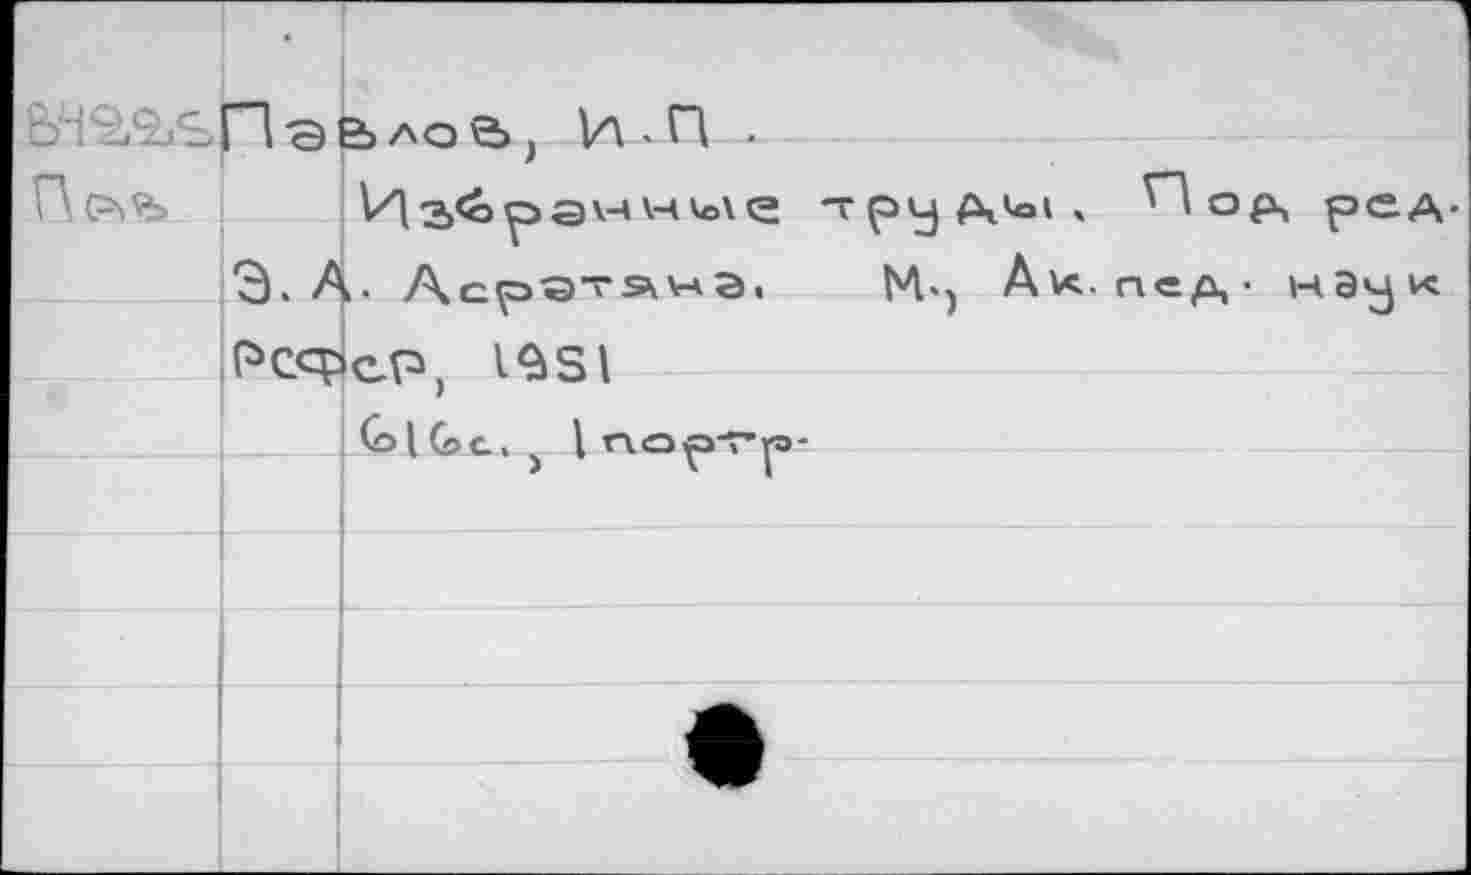 Павлов, И.П.
Пав
Избранные труды. Под ред.
Э.А. Асратяна. М., Ак. пед. наук
РСФСР, 1951
616с., 1 портр.